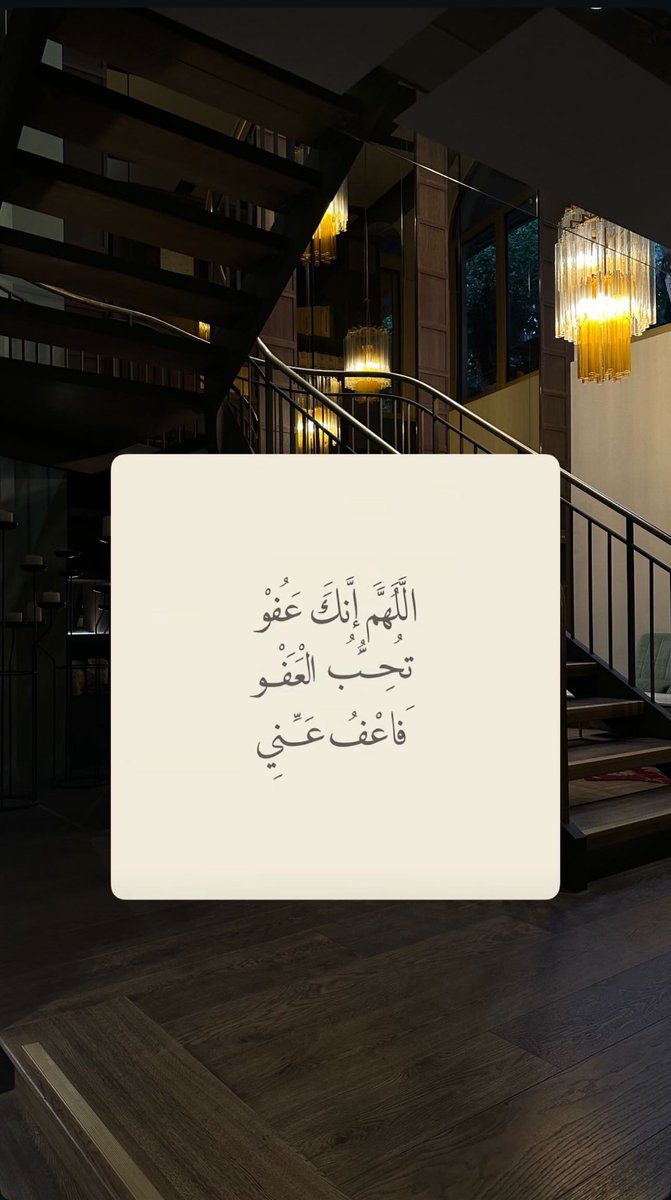 اللَّهُمَّ إنَّكَ عَفُوْ
تُحِبُّ العَفْو
فَاعْفُ عَنِّي